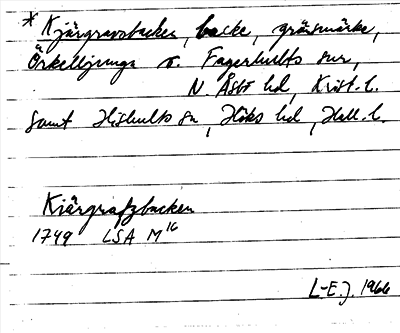 * Kjärgravsbacken, backe, gränsmärke,
Örkelljunga o. Fagerhults snr,
N. Åsbo hd, Krist. l.
samt Hishults sn, Höks hd, Hall. l.
Kiärgrafzbacken
1749 LSA M 16
L-E. J. 1966